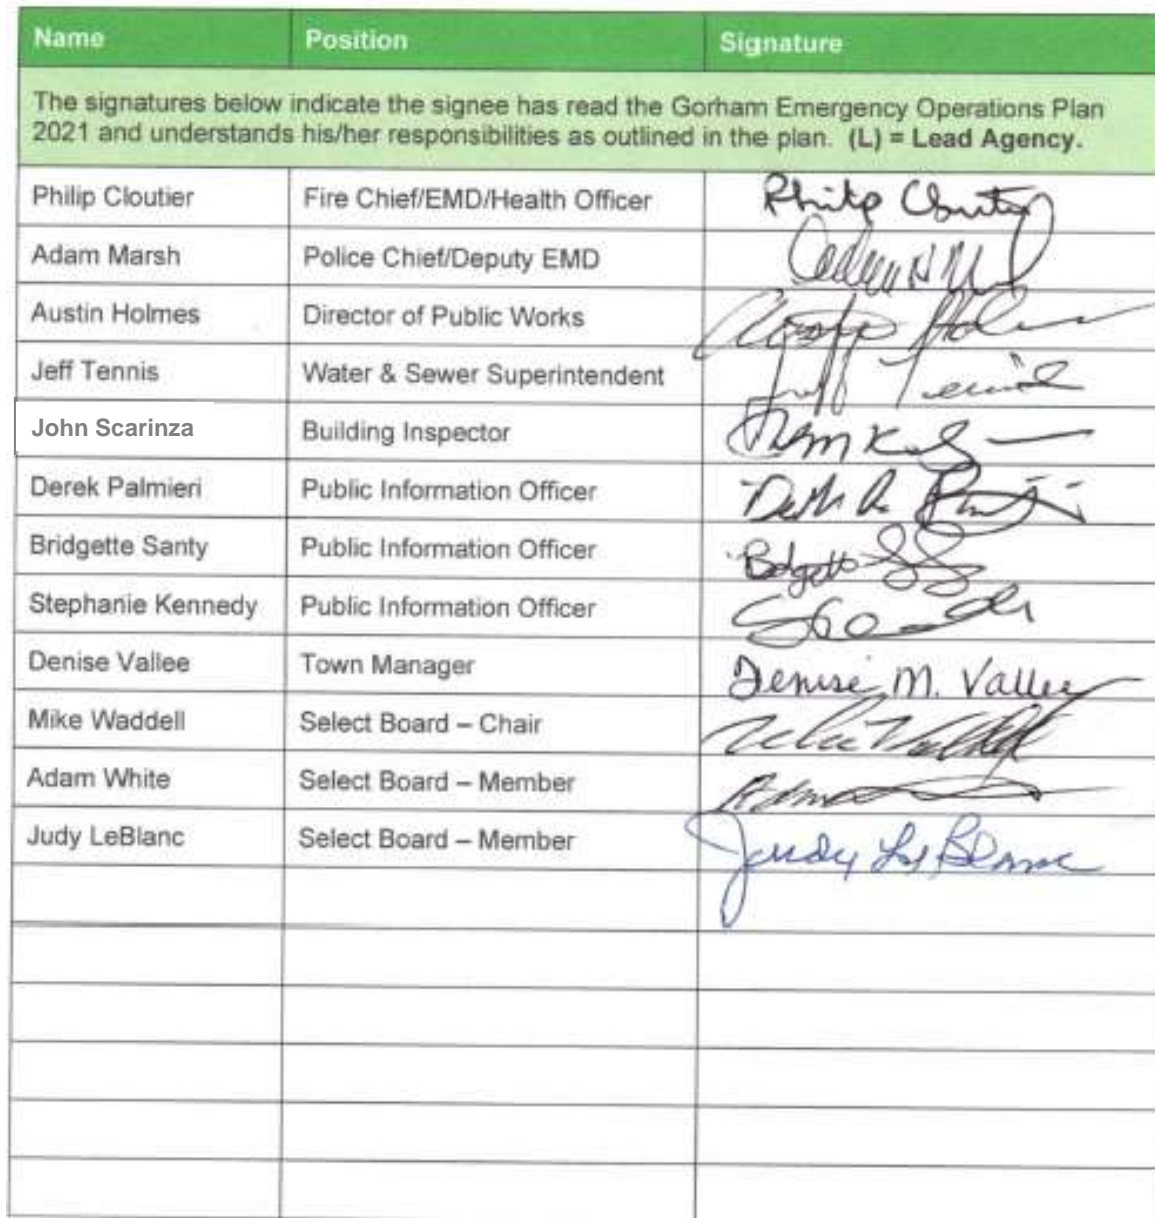 Name Position Signature
The signatures below indicate the signee has read the Gorham Emergency Operations Plan
2021 and understands his/her responsibilities as outlined in the plan. (L) = Lead Agency.
Philip Cloutier Fire Chief/EMD/Health Officer Philip Cloutier
Adam Marsh Police Chief/Deputy EMD
Austin Holmes Director of Public Works Holmes
Jeff Tennis Water & Sewer Superintendent Jeff Tennis
John Scarinza Building Inspector
Derek Palmieri Public Information Officer
Bridgette Santy Public Information Officer
Stephanie Kennedy Public Information Officer
Denise Vallee Town Manager Denise M. Vallee
Mike Waddell Select Board – Chair
Adam White Select Board – Member
Judy LeBlanc Select Board – Member Judy LeBlanc